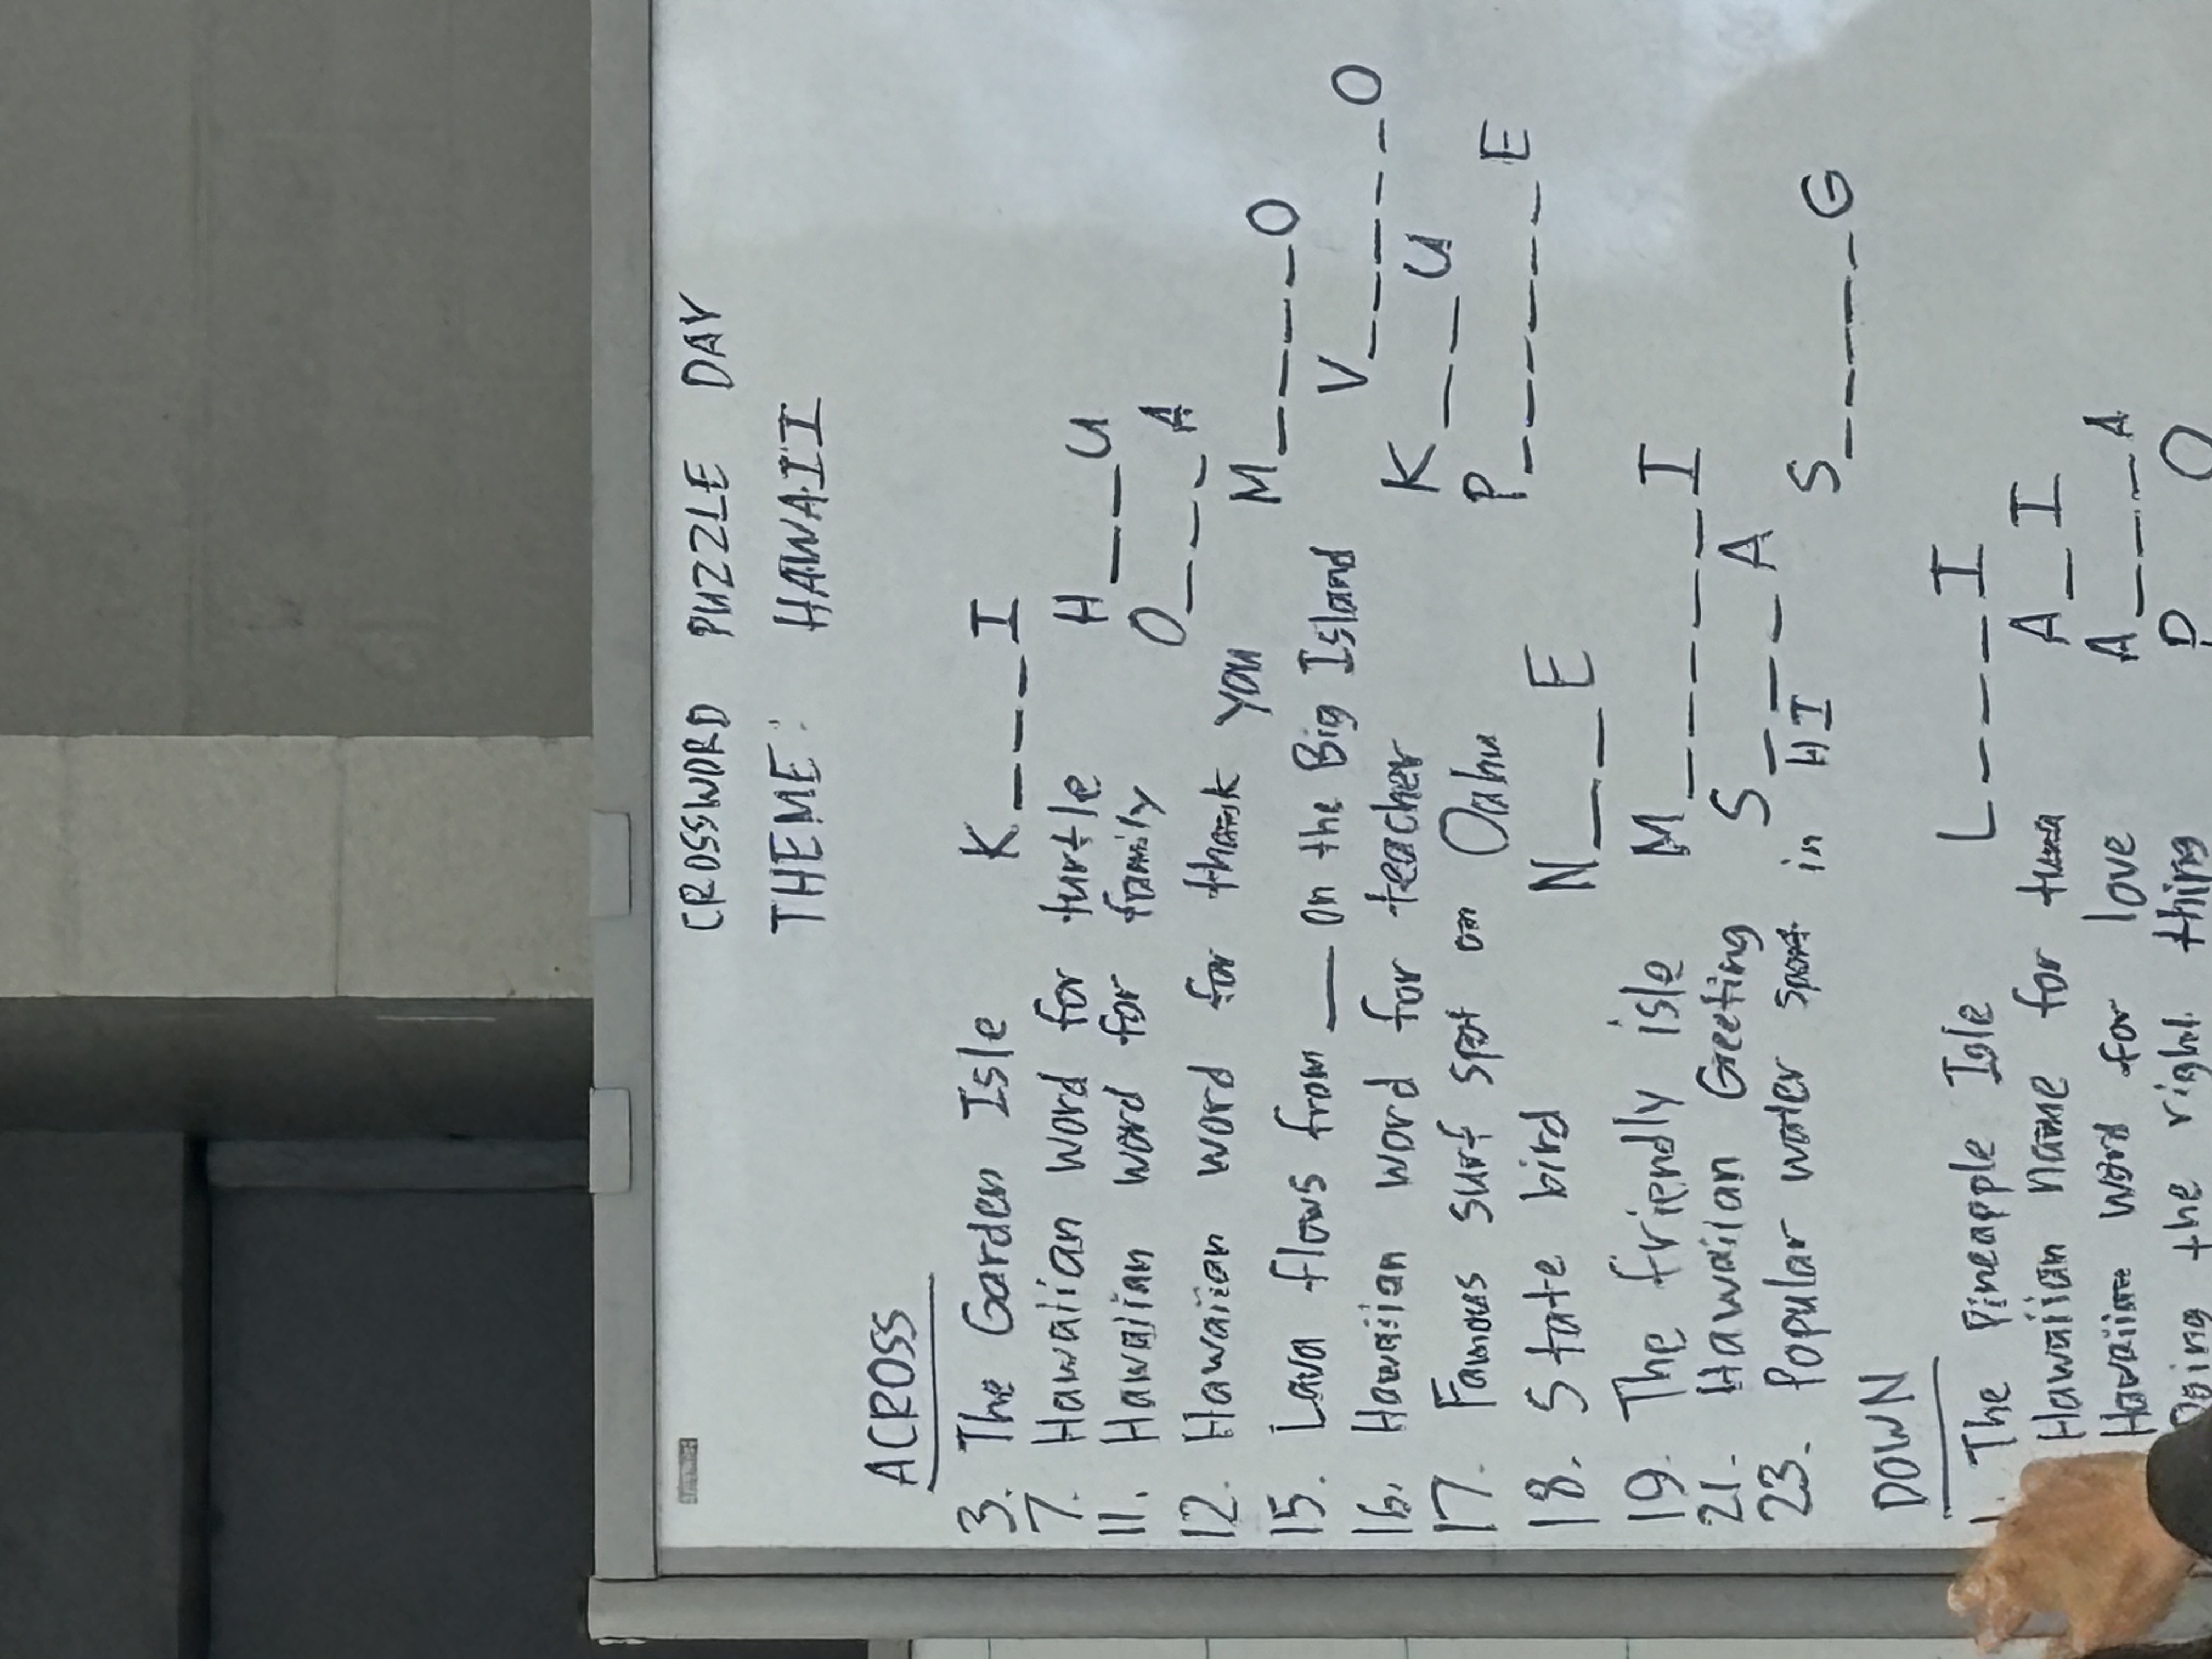 CROSSWORD PUZZLE DAY
THEME: HAWAII
ACROSS
3. The Garden Isle K _ _ _ I
7. Hawaiian word for turtle H _ _ U
11. Hawaiian word for family O _ _ _ A
12. Hawaiian word for thank you M _ _ _ _ O
15. Lava flows from ___ on the Big Island V _ _ _ _ _ O
16. Hawaiian word for teacher K _ _ U
17. Famous surf spot on Oahu P _ _ _ _ _ _ E
18. State bird N _ _ E
19. The friendly isle M _ _ _ _ _ I
21. Hawaiian Greeting S _ _ _ A
23. Popular water sport in HI S _ _ _ _ _ G
DOWN
1. The Pineapple Isle L _ _ _ I
Hawaiian name for tuna A _ I
Hawaiian word for love A _ _ _ A
Doing the right thing P O